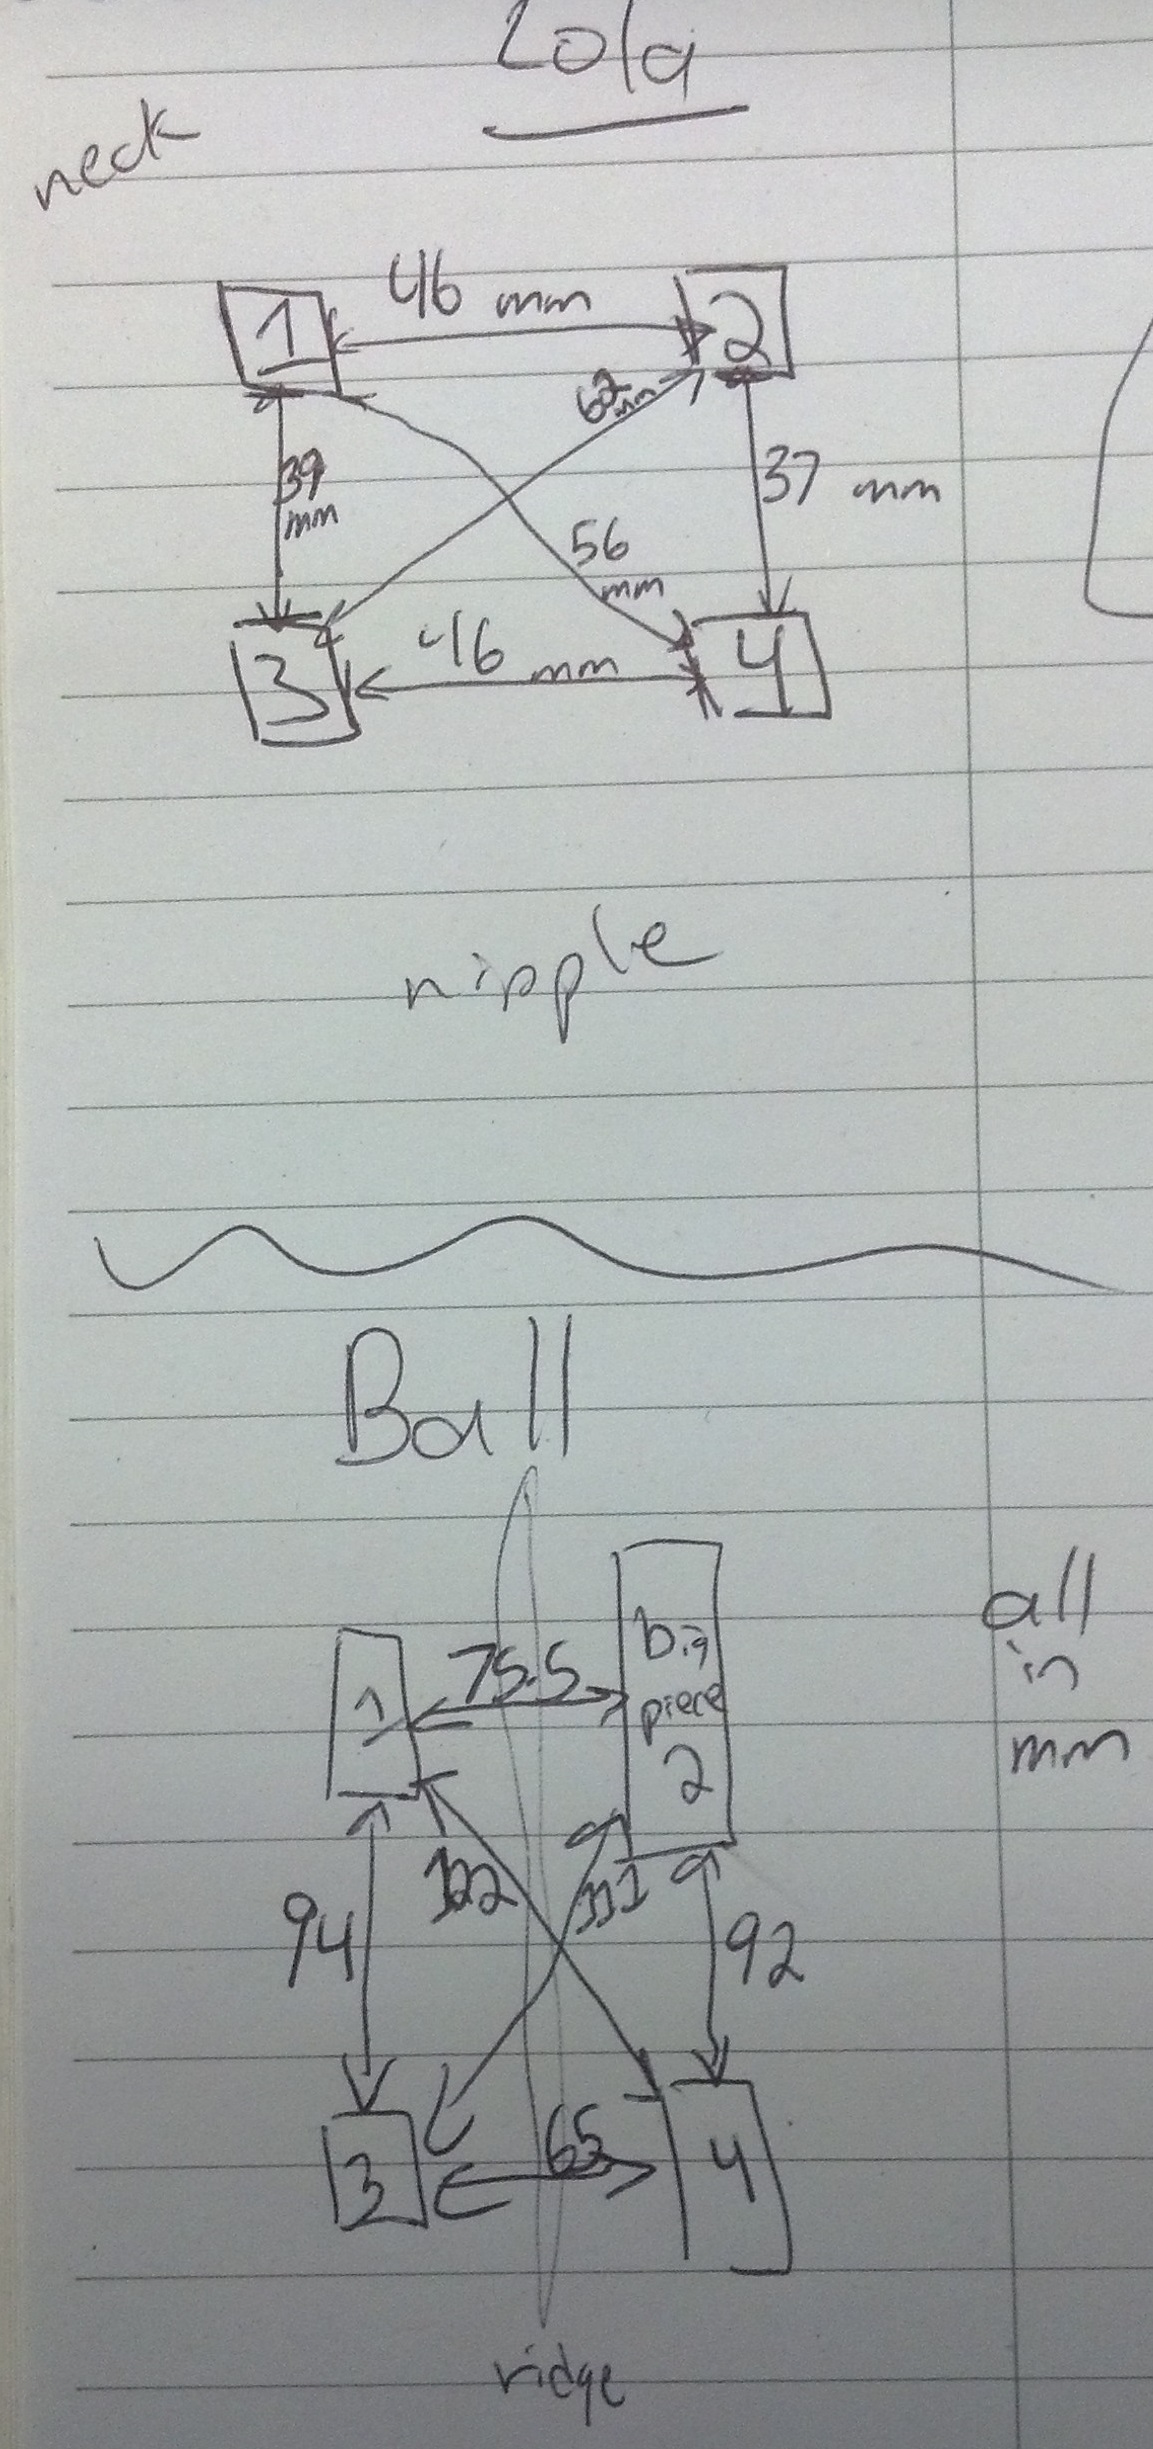 Lola
neck
1 46 mm 2
62 mm
39 mm
37 mm
56 mm
3 46 mm 4
nipple
Ball
1 75.5 big piece 2
all in mm
94 122 111 92
3 65 4
ridge